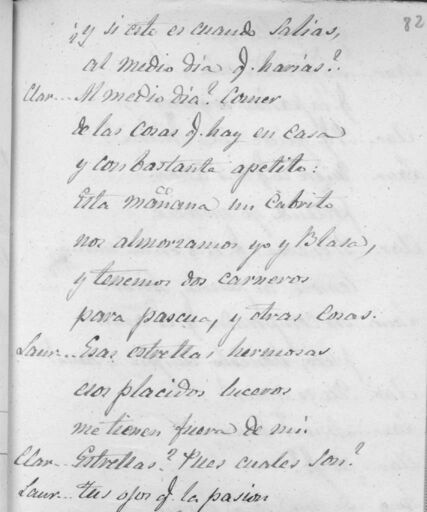 82
¿y si esto es cuando salias,
al medio dia q. harias?
Clar... Al medio dia? Comer
de las cosas q. hay en casa
y con bastante apetito:
Esta mañana un Cabrito
nos almorzamos yo y Blasa,
y tenemos dos carneros
para pascua, y otras cosas.
Laur... Esas estrellas hermosas
esos placidos luceros
me tienen fuera de mi.
Clar... Estrellas? Pues cuales son?
Laur... tus ojos q. la pasion